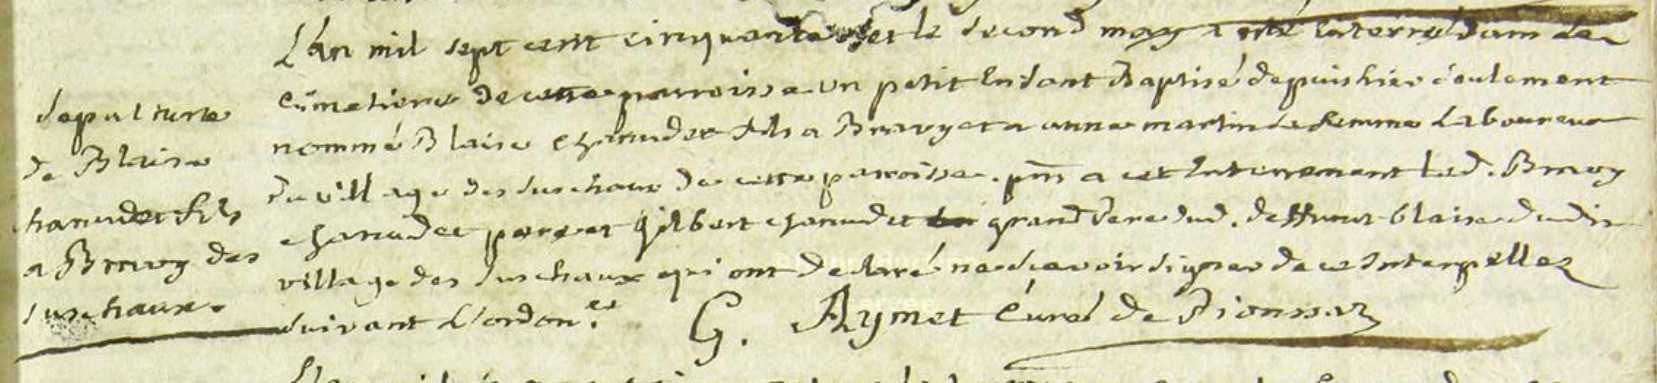 sepulture
de Blaise
chanudet fils
a Bravy des
suschaux.
L'an mil sept cent cinquante et le second may a esté enterré dans le
cimetiere de cette parroisse un petit Enfant Baptisé depuis hier seulement
nommé Blaise chanudet fils a Bravy et a anne martin sa femme Laboureur
du village des suschaux de cette parroisse. pnt a cet Enterrement led. Bravy
chanudet pere et gilbert chanudet grand Pere dud. deffunt blaise dudit
village des suschaux qui ont declaré ne scavoir signer de ce Interpellez
suivant L'ordon.ce G. Aymet Curé de Pionssaz